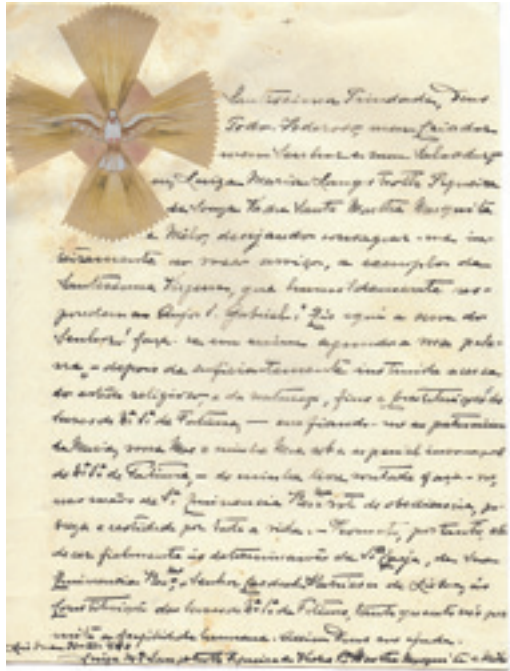 Santissima Trindade, Deus
Todo-Poderoso, meu Criador
meu Senhor e meu Salvador,
eu, Luiza Maria Langstroth Figueira
de Souza Vadre Santa Martha Mesquita
e Mello, desejando consagrar-me in-
teiramente ao vosso serviço, a exemplo da
Santissima Virgem, que humildemente res-
pondeu ao Anjo S. Gabriel: Eis aqui a serva do
Senhor! faça-se em mim segundo a vossa pala-
vra, e depois de suficientemente instruida acerca
do estado religioso e da natureza, fins e Constituições das
Servas de N. S. de Fatima, — confiando-me ao patrocinio
de Maria, vossa Mãe e minha
de N. S. de Fatima, — de minha livre vontade faço-vos,
nas mãos de S. Eminencia voto de obediencia, po-
breza e castidade por toda a vida. — Prometo, portanto, obe-
decer fielmente ás determinações da S. Igreja, de Sua
Eminencia o Senhor Cardeal Patriarca de Lisboa, ás
Constituições das Servas de N. S. de Fatima, tanto quanto
a fragilidade humana. Assim Deus me ajude.
Luiza M. Langstroth Figueira de Souza V. Santa Martha Mesquita e Mello